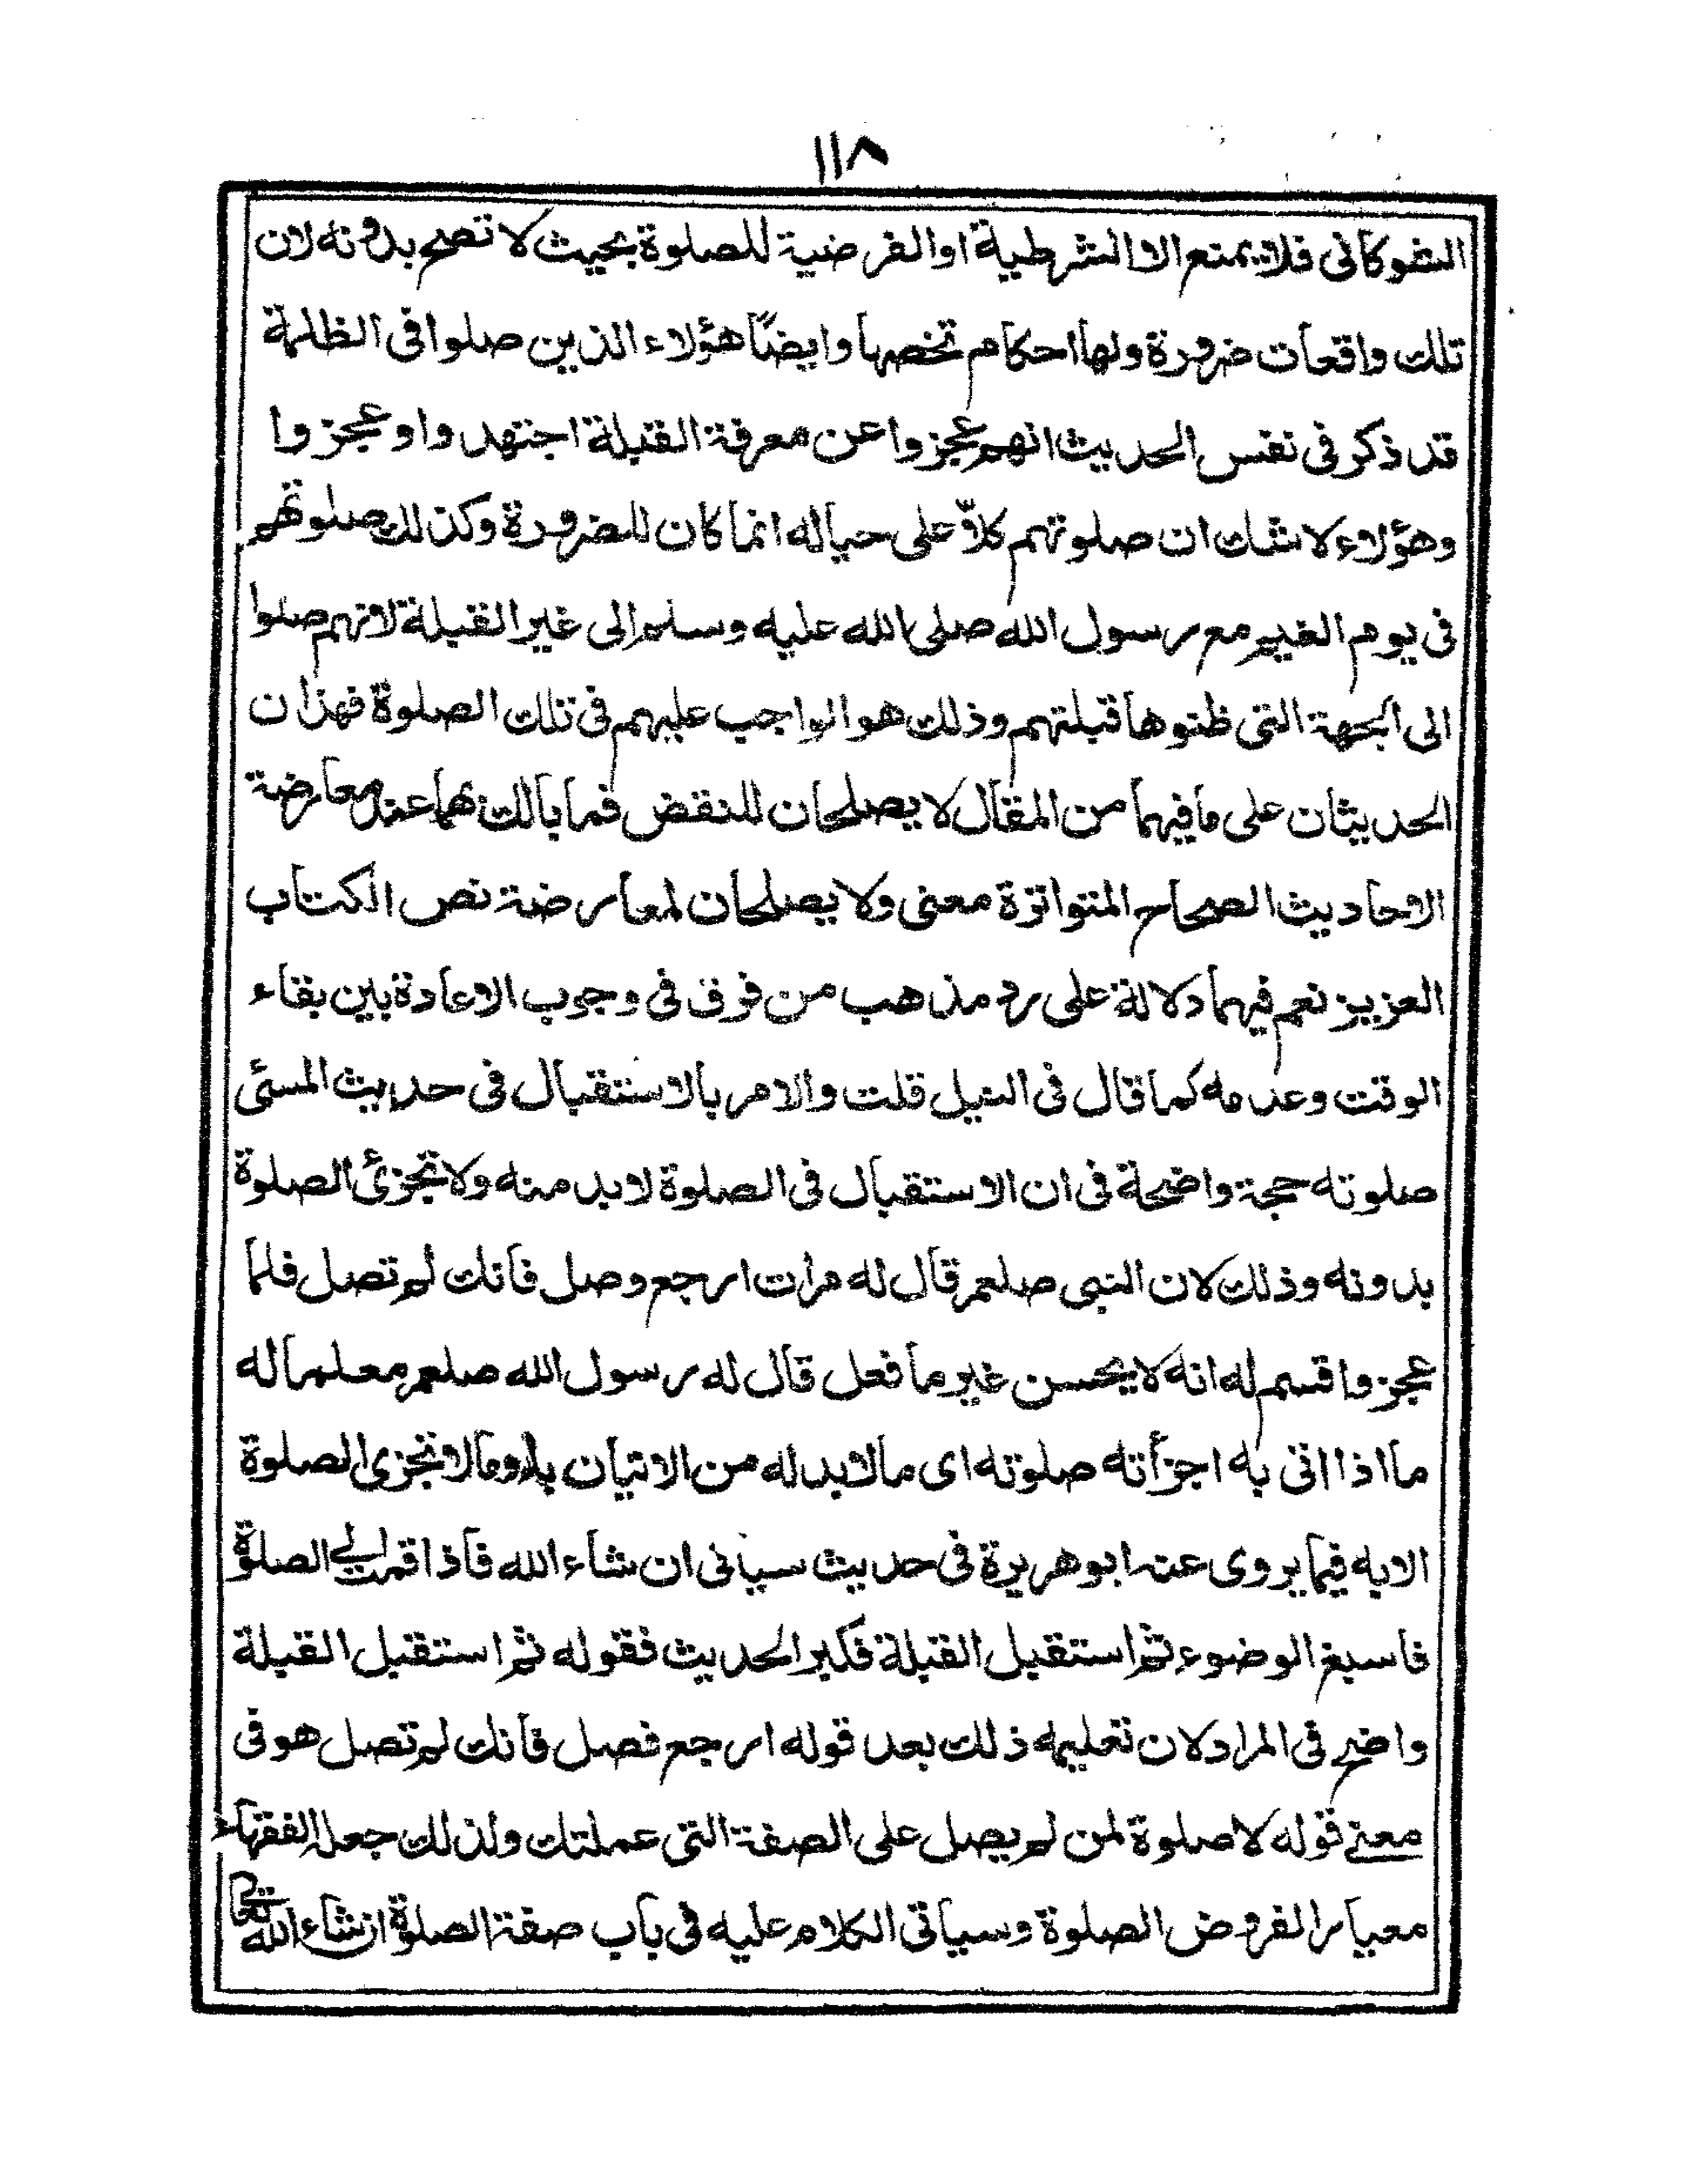 ١١٨
الشوكانى فلا يمنع الا الشرطية او الفرضية للصلوة بحيث لا تصح بدونه لان
تلك واقعات ضرورة ولها احكام تخصها وايضًا هؤلاء الذين صلوا فى الظلمة
قد ذكر فى نفس الحديث انهم عجزوا عن معرفة القبلة اجتهدوا وعجزوا
وهؤلاء لا شك ان صلوتهم كلاّ على حياله انما كان للضرورة وكذلك صلوتهم
فى يوم الغيم مع رسول الله صلى الله عليه وسلم الى غير القبلة لانهم صلوا
الى الجهة التى ظنوها قبلتهم وذلك هو الواجب عليهم فى تلك الصلوة فهذان
الحديثان على ما فيهما من المقال لا يصلحان للنقض فما بالك بهما عند معارضة
الاحاديث الصحاح المتواترة معنى ولا يصلحان لمعارضة نص الكتاب
العزيز نعم فيهما دلالة على رد مذهب من فرق فى وجوب الاعادة بين بقاء
الوقت وعدمه كما قال فى النيل قلت والامر بالاستقبال فى حديث المسئى
صلوته حجة واضحة فى ان الاستقبال فى الصلوة لابد منه ولا تجزئ الصلوة
بدونه وذلك لان النبى صلعم قال له مرات ارجع وصل فانك لم تصل فلما
عجز واقسم له انه لا يحسن غير ما فعل قال له رسول الله صلعم معلما له
ما اذا اتى به اجزأته صلوته اى مالا بد له من الاتيان به وما لا تجزى الصلوة
الا به فيما يروى عنه ابو هريرة فى حديث سيأتى ان شاء الله فاذا قمت الى الصلوة
فاسبغ الوضوء ثم استقبل القبلة فكبر الحديث فقوله ثم استقبل القبلة
واضح فى المراد لان تعليمه ذلك بعد قوله ارجع فصل فانك لم تصل هو فى
معنى قوله لا صلوة لمن لم يصل على الصفة التى عملتك ولذلك جعله الفقهاء
معيارا لفروض الصلوة وسياتى الكلام عليه فى باب صفة الصلوة ان شاء الله تعالى